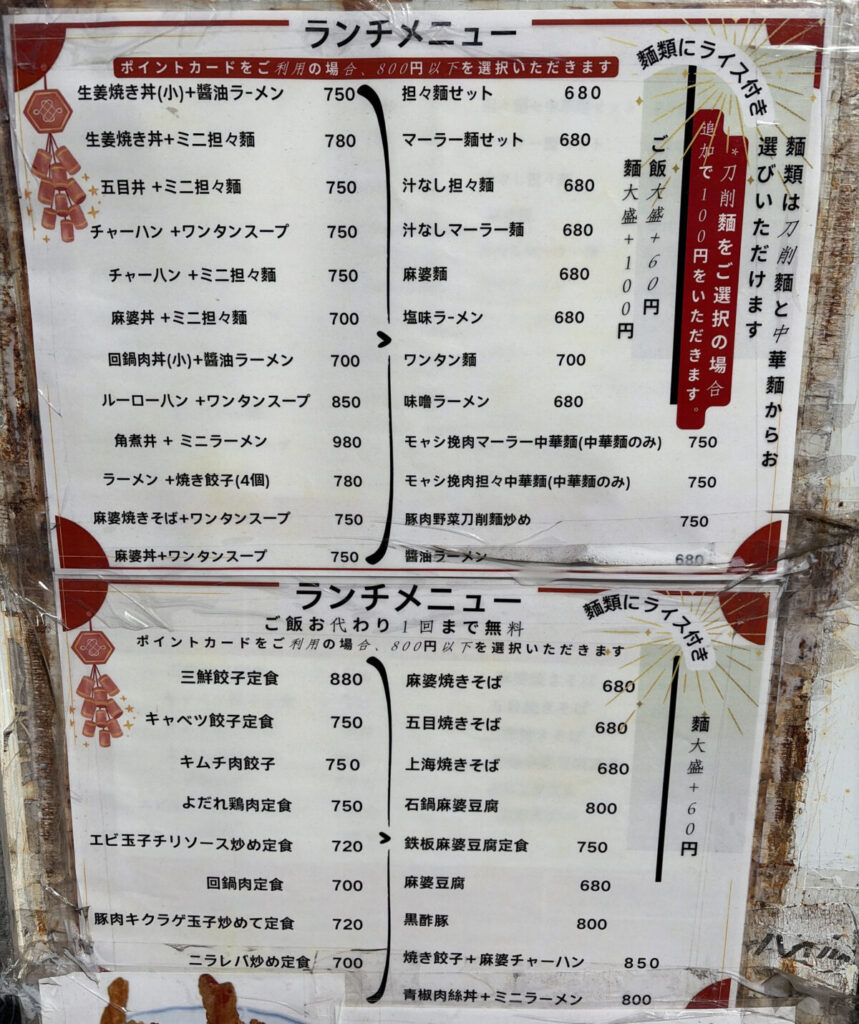 ランチメニュー
ポイントカードをご利用の場合、800円以下を選択いただきます
生姜焼き丼(小)+醬油ラーメン 750
生姜焼き丼+ミニ担々麺 780
五目丼 +ミニ担々麺 750
チャーハン +ワンタンスープ 750
チャーハン +ミニ担々麺 750
麻婆丼 +ミニ担々麺 700
回鍋肉丼(小)+醬油ラーメン 700
ルーローハン +ワンタンスープ 850
角煮丼 + ミニラーメン 980
ラーメン +焼き餃子(4個) 780
麻婆焼きそば+ワンタンスープ 750
麻婆丼+ワンタンスープ 750
担々麺セット 680
マーラー麺セット 680
汁なし担々麺 680
汁なしマーラー麺 680
麻婆麺 680
塩味ラーメン 680
ワンタン麺 700
味噌ラーメン 680
モヤシ挽肉マーラー中華麺(中華麺のみ) 750
モヤシ挽肉担々中華麺(中華麺のみ) 750
豚肉野菜刀削麺炒め 750
醬油ラーメン 680
麺類にライス付き
麺類は刀削麺と中華麺からお
選びいただけます
*刀削麺をご選択の場合
追加で100円をいただきます。
ご飯大盛+60円
麺大盛+100円
ランチメニュー
ご飯お代わり1回まで無料
ポイントカードをご利用の場合、800円以下を選択いただきます
三鮮餃子定食 880
キャベツ餃子定食 750
キムチ肉餃子 750
よだれ鶏肉定食 750
エビ玉子チリソース炒め定食 720
回鍋肉定食 700
豚肉キクラゲ玉子炒めて定食 720
ニラレバ炒め定食 700
麻婆焼きそば 680
五目焼きそば 680
上海焼きそば 680
石鍋麻婆豆腐 800
鉄板麻婆豆腐定食 750
麻婆豆腐 680
黒酢豚 800
焼き餃子+麻婆チャーハン 850
青椒肉絲丼+ミニラーメン 800
麺類にライス付き
麺大盛+60円